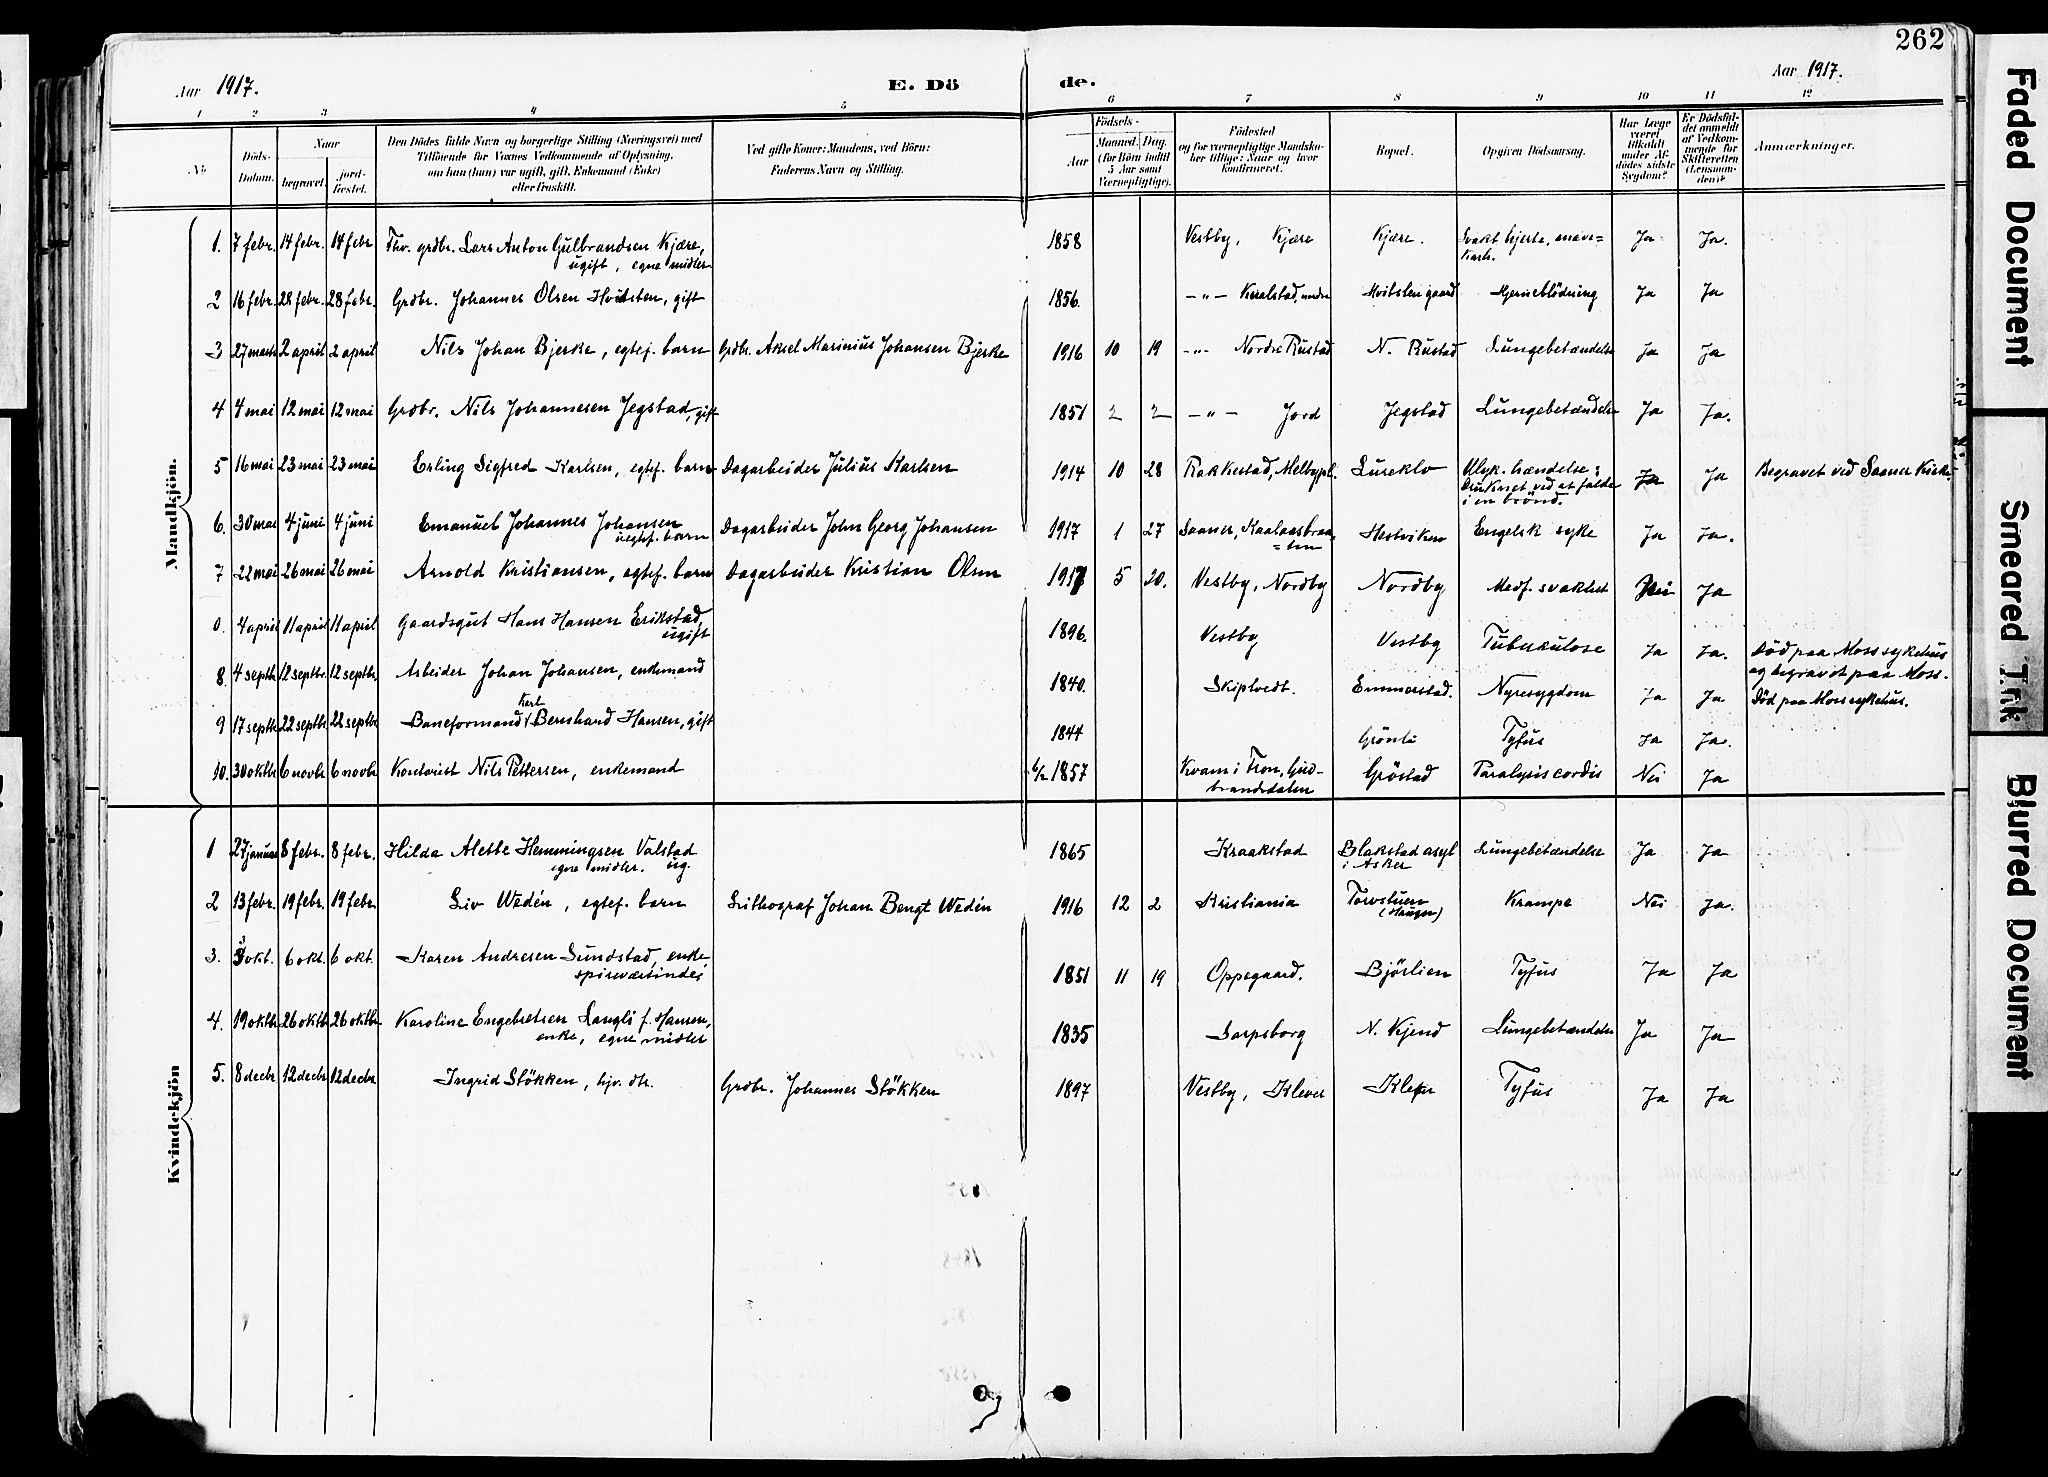 262
Aar 1917.
E. Dö
de.
Aar 1917.
1 2 3 4 5 6 7 8 9 10 11 12
Nr.
Döds-Datum.
Naar
begravet.
jord-fæstet.
Den Dödes fulde Navn og borgerlige Stilling (Næringsvei) med
Tilföiende for Voxnes Vedkommende af Oplysning,
om han (hun) var ugift, gift, Enkemand (Enke)
eller fraskilt.
Ved gifte Koner: Mandens, ved Börn:
Faderens Navn og Stilling.
Födsels-
Aar
Maaned. Dag.
(for Börn indtil
5 Aar samt
Værnepligtige).
Födested
og for værnepligtige Mandska-
ber tillige: Naar og hvor
konfirmeret.
Bopæl.
Opgiven Dödsaarsag.
Har Læge
været
tilkaldt
under Af-
dödes sidste
Sygdom?
Er Dödsfal-
det anmeldt
af Vedkom-
mende for
Skifteretten
(Lensman-
den)?
Anmærkninger.
Mandkjön.
1. 7 febr. 14 febr. 14 febr Fhv. grdbr. Lars Anton Gulbrandsen Kjære, ugift, egne midler 1858 Vestby, Kjære Kjære. Svakt hjerte, Ja Ja.
2 16 febr. 28 febr. 28 febr. Grdbr. Johannes Olsen Hvitsten, gift 1856. —"— Krralstad, undre Hvitsten gaard Hjerneblödning Ja Ja
3 27 marts 2 april 2 april Nils Johan Bjerke, egtef. barn Grdbr. Aksel Marinius Johansen Bjerke 1916 10 19 —"— Nordre Rustad N. Rustad Lungebetændelse Ja Ja
4 4 mai 12 mai 12 mai Grdbr. Nils Johannesen Jegstad, gift 1851 2 2 —"— Jord Jegstad Lungebetændelse Ja Ja.
5 16 mai 23 mai 23 mai Erling Sigfred Karlsen, egtef. barn Dagarbeider Julius Karlsen 1914 10 28 Rakkestad, Melbypl. Lureklo Ulyk. hændelse: Druknet ved at falde i en brönd. Ja Ja Begravet ved Saaner Kirke.
6. 30 mai 4 juni 4 juni Emanuel Johannes Johansen uegtef. barn Dagarbeider John Georg Johansen 1917 1 27 Saaner, Kaalaasbraa=ten Hestviken Engelsk syke Ja Ja.
7 22 mai 26 mai 26 mai Arnold Kristiansen, egtef. barn Dagarbeider Kristian Olsen 1917 5 20. Vestby, Nordby Nordby Medf. svakhet Nei Ja
0. 4 april 11 april 11 april Gaardsgut Hans Hansen Erikstad, ugift 1896. Vestby Vestby Tuberkulose Ja Ja. Död paa Moss sykehus og begravet paa Moss.
8. 4 septb. 12 septbr. 12 septb. Arbeider Johan Johansen, enkemand 1840. Skiptvedt. Emmerstad. Nyresygdom Ja Ja Död paa Moss sykehus.
9 17 septb. 22 septb. 22 septbr. Baneformand Karl Bernhard Hansen, gift 1844 Grönli Tyfus Ja Ja.
10. 30 oktb. 6 novb. 6 novb. Kontorist Nils Pettersen, enkemand 6/2 1857 Kvam i Fron, Gud-brandsdalen Gröstad Paralysis cordis Nei Ja
Kvindekjön
1 27 januar 8 febr. 8 febr. Hilda Alette Hemmingsen Valstad egne midler. ug. 1865 Kraakstad Blakstad asyl i Asker Lungebetændelse Ja Ja
2 13 febr. 19 febr. 19 febr. Liv Wedén, egtef. barn Lithograf Johan Bengt Wedén 1916 12 2 Kristiania Torvstuen (Haugen) Krampe Nei Ja.
3. 3 okt. 6 okt. 6 okt. Karen Andresen Sundstad, enke, spiseværtinde 1851 11 19 Oppegaard. Björlien Tyfus Ja Ja
4. 19 oktb. 26 oktb. 26 oktbr. Karoline Engebretsen Langli f. Hansen, enke, egne midler 1835 Sarpsborg N. Kjend Lungebetændelse Ja Ja
5. 8 decbr 12 decbr 12 decbr Ingrid Stökken, hjv. dtr. Grdbr. Johannes Stökken 1897 Vestby, Klever Klever Tyfus Ja Ja
Faded Document
Smeared Ink
Blurred Document